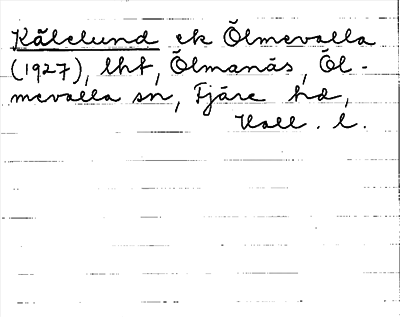 Kålelund ek Ölmevalla
(1927), lht, Ölmanäs, Öl-
mevalla sn, Fjäre hd,
Hall. l.